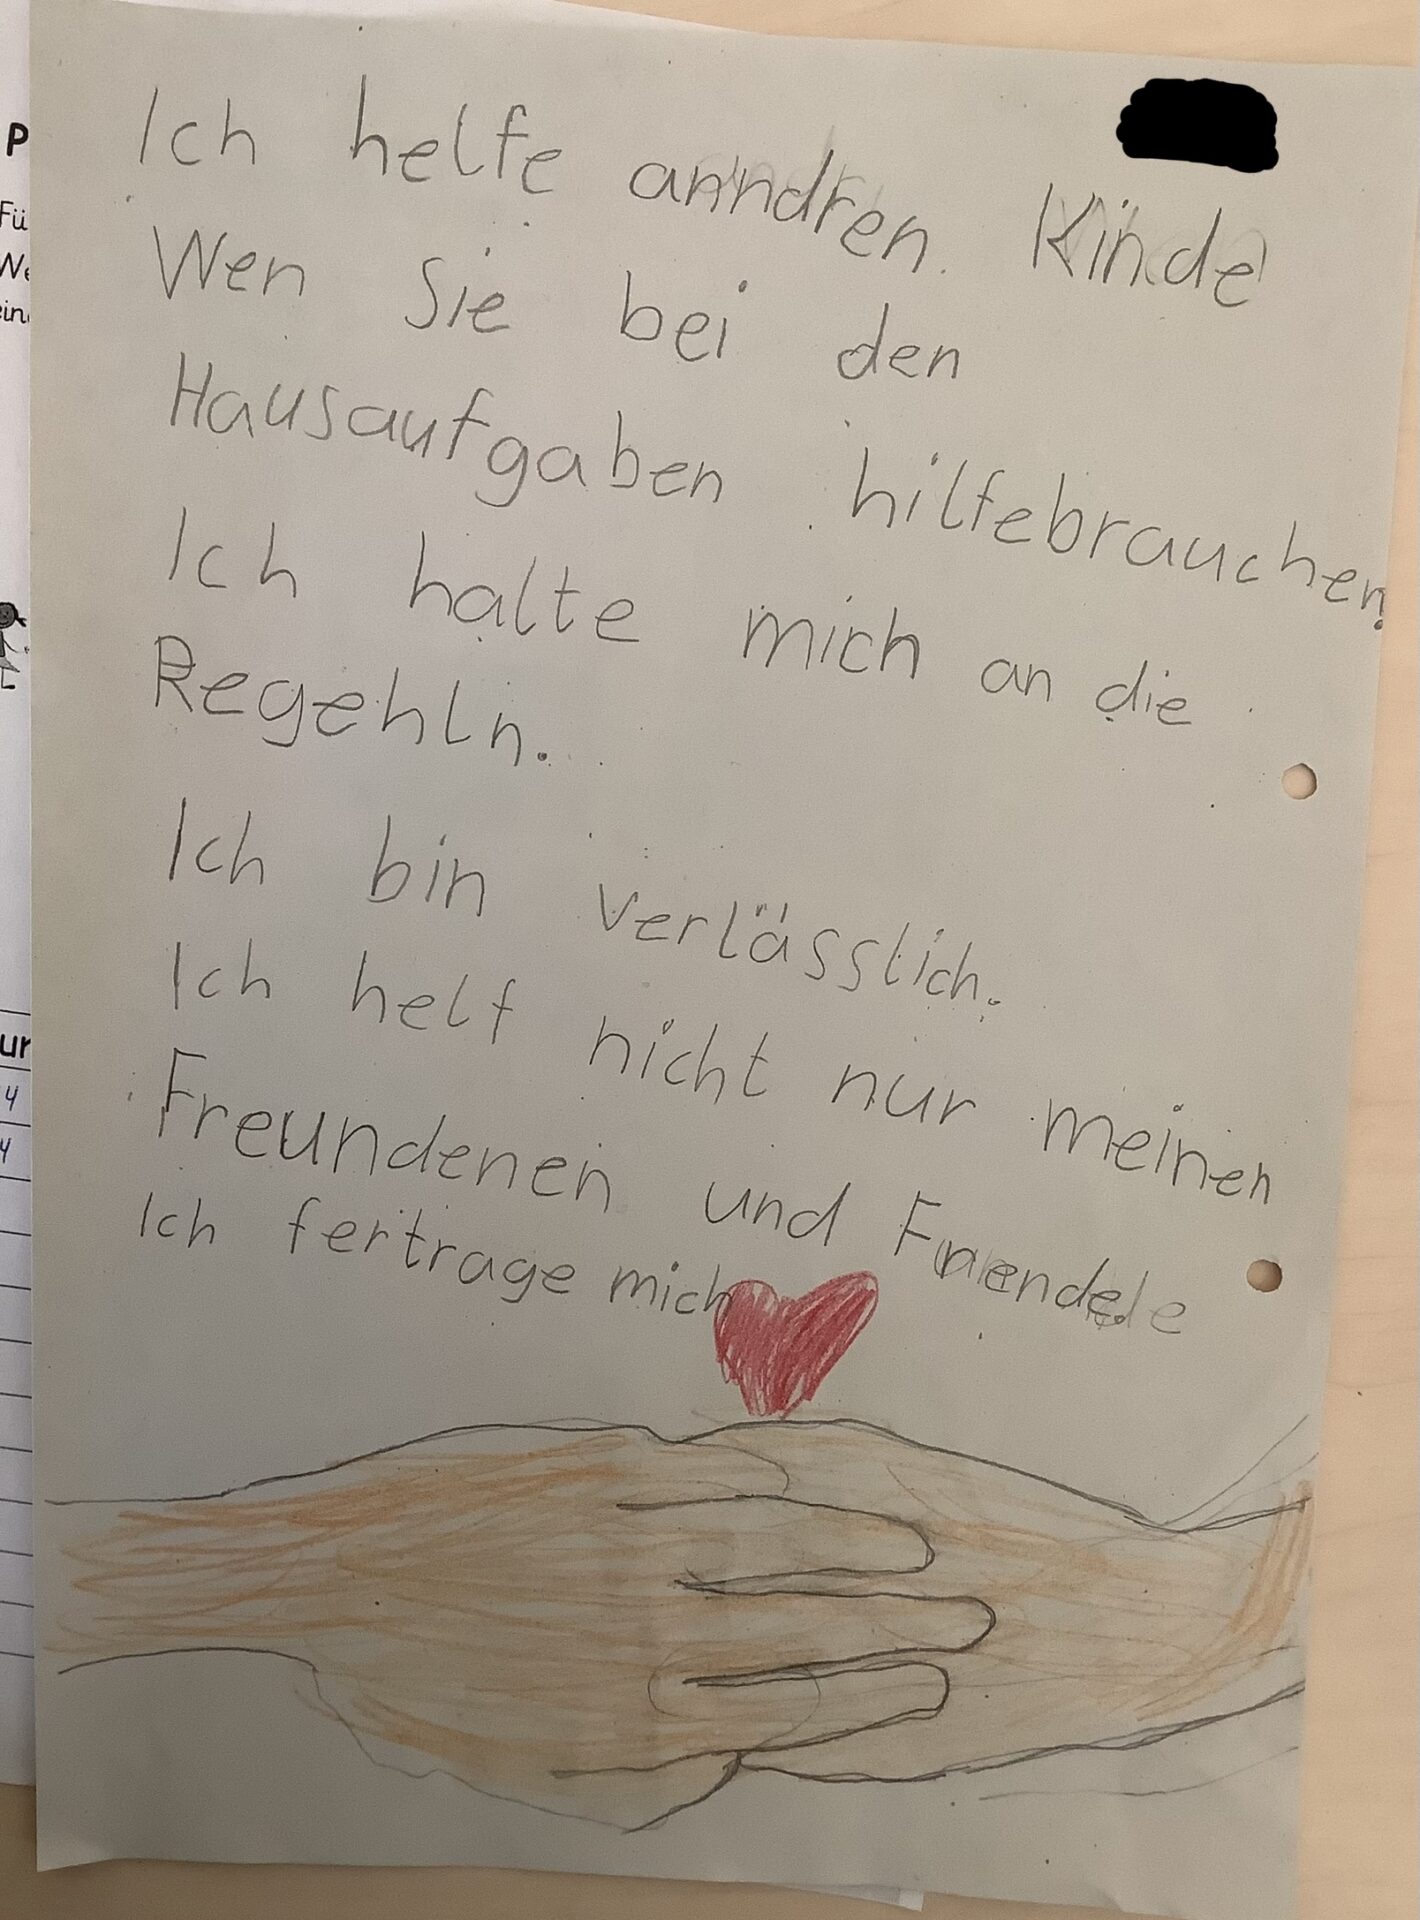 Ich helfe anndren Kinde
Wen Sie bei den
Hausaufgaben hilfebrauchen.
Ich halte mich an die
Regehln.
Ich bin verlässlich.
Ich helf nicht nur meinen
Freundenen und
Ich fertrage mich
P
Fü
We
ein
ur
4
4